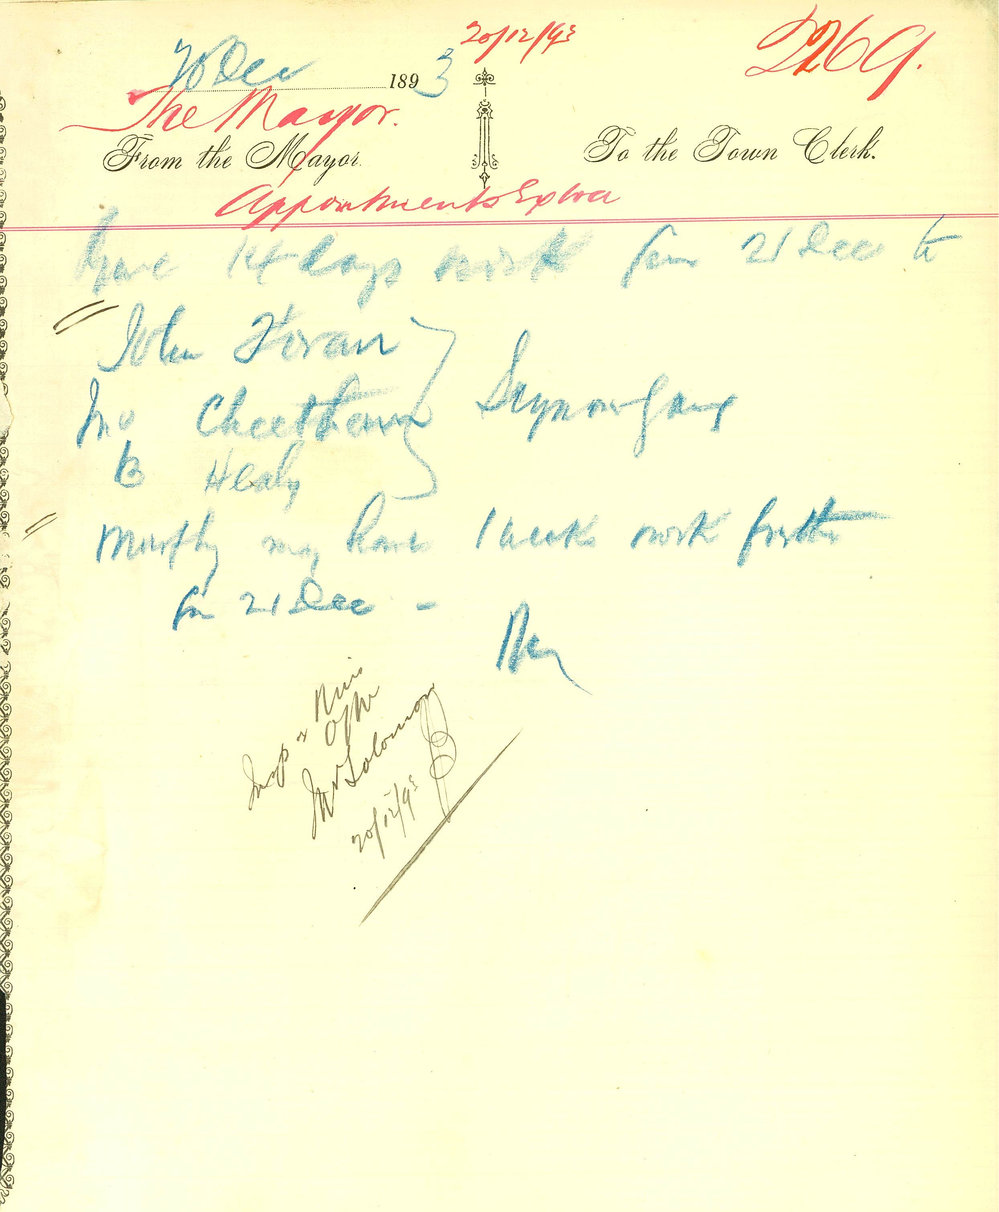 20/12/93
2269.
20 Dec 1893
The Mayor.
From the Mayor.
To the Town Clerk.
Appointments Extra
Give 14 days work from 21 Dec to
John Horan
Jno Cheetham
B Healy
Murphy may have 1 weeks work further
from 21 Dec -
Insp of
Mr Solomon
20/12/93